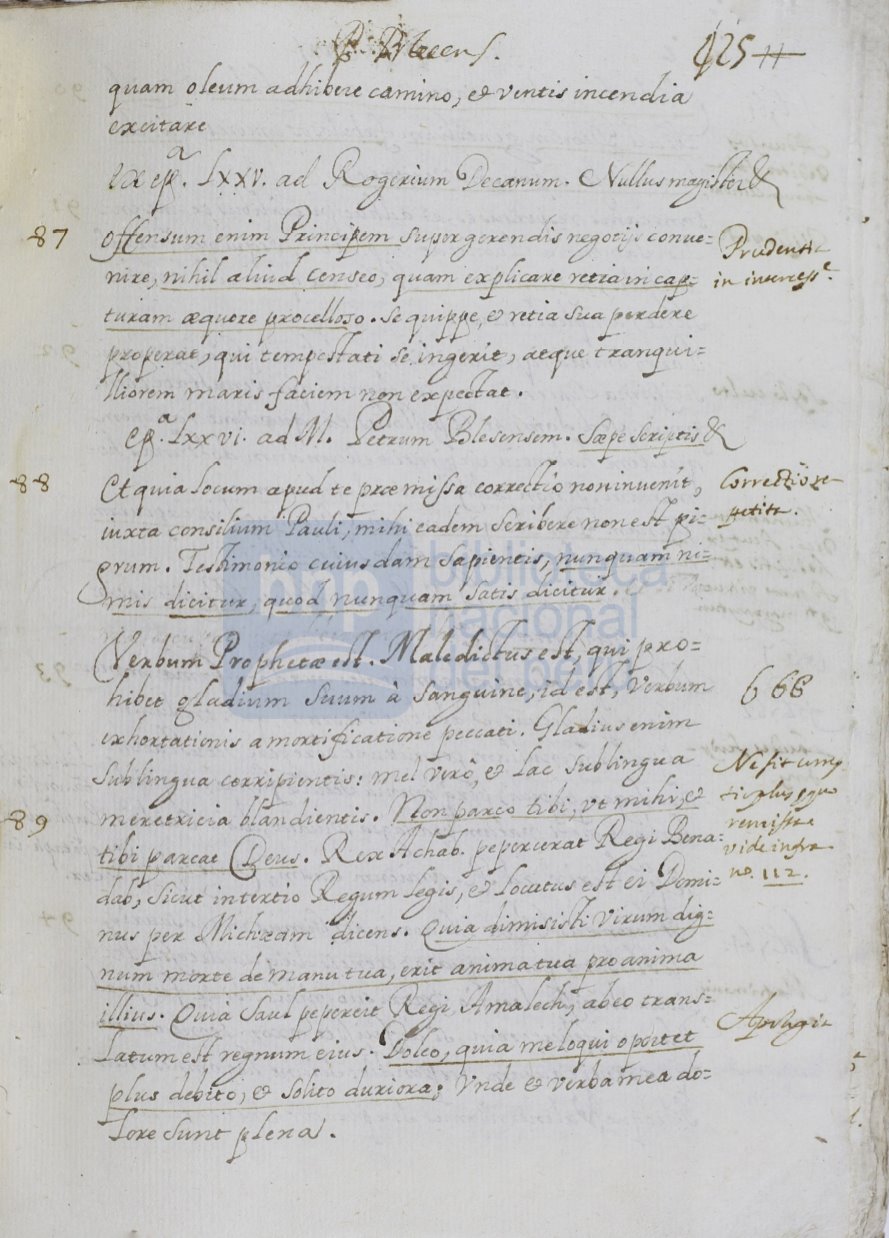 P. Blecens.
425
quam oleum adhibere camino, & ventis incendia
excitare
Ex epª. LXXV. ad Rogerium Decanum. Nullus magister &
87
offensum enim Principem super gerendis negotijs conue=
Prudentia
nire, nihil aliud censeo, quam explicare retia in cap=
in
turam æquore procelloso. Se quippe, & retia sua perdere
properat, qui tempestati se ingerit, aeque tranqui=
lliorem maris faciem non expectat.
epª. Lxxvi. ad M. Petrum Blesensem. Sæpe scriptis &
88
Et quia locum apud te præmissa correctio non inuenit,
Correctio re
iuxta consilium Pauli, mihi eadem scribere non est pi=
petita.
grum. Testimonio cuiusdam sapientis, nunquam ni=
mis dicitur, quod nunquam satis dicitur.
Verbum Prophetæ est. Maledictus est, qui pro=
hibet gladium suum à sanguine, id est, verbum
668
exhortationis a mortificatione peccati. Gladius enim
sub lingua corripientis: mel verò, & lac sub lingua
Ne sit
meretricia blandientis. Non parco tibi, vt mihi, &
plus equo
89
tibi parcat Deus. Rex Achab pepercerat Regi Bena=
remissa
vide infra
dab, sicut in tertio Regum legis, & locutus est ei Domi=
nº. 112.
nus per Michæam dicens. Quia dimisisti virum dig=
num morte de manu tua, erit anima tua pro anima
illius. Quia Saul pepercit Regi Amalech, ab eo trans=
Apologia
latum est regnum eius. Doleo, quia me loqui oportet
plus debito, & solito duriora; Vnde & verba mea do=
lore sunt plena.
bnp biblioteca
nacional
del perú